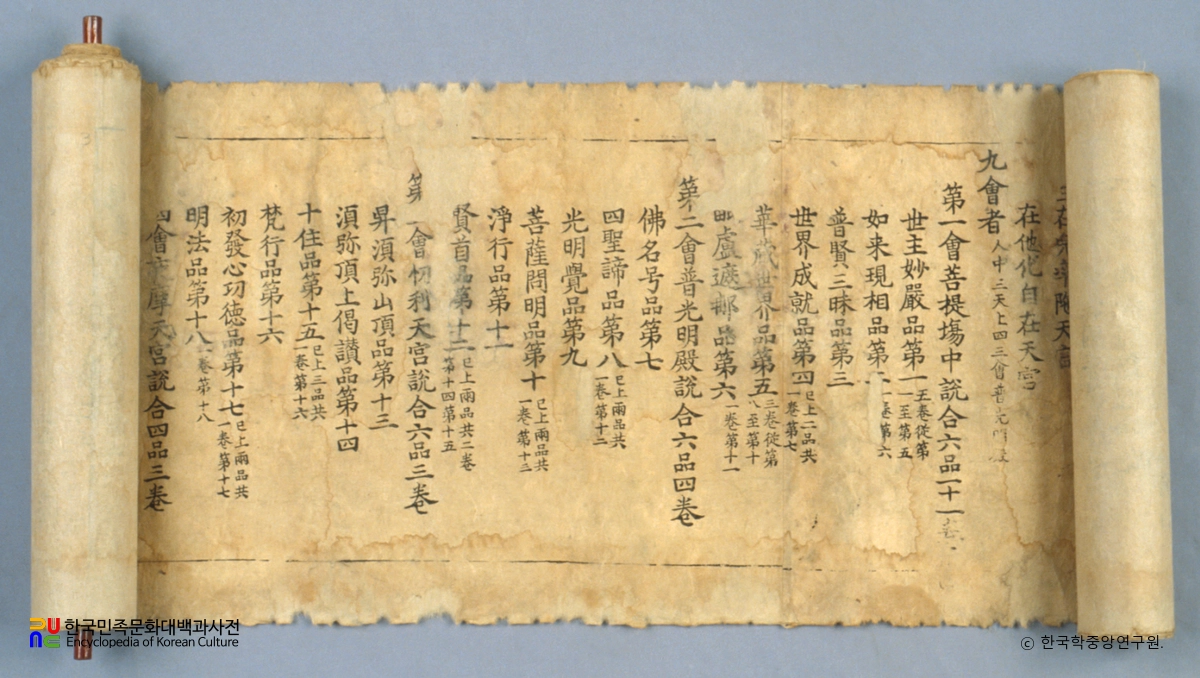 在他化自在天宮
九會者人中三天上四三會普光明殿
第一會菩提塲中說合六品一十一卷
世主妙嚴品第一一五卷從第一至第五
如来現相品第二一卷第六
普賢三昧品第三
世界成就品第四已上二品共一卷第七
華藏世界品第五三卷從第八至第十
毗盧遮那品第六一卷第十一
第二會普光明殿說合六品四卷
佛名号品第七
四聖諦品第八已上兩品共一卷第十二
光明覺品第九
菩薩問明品第十已上兩品共一卷第十三
淨行品第十一
賢首品第十二已上兩品共二卷第十四第十五
第 會忉利天宮說合六品三卷
昇湏弥山頂品第十三
湏弥頂上偈讃品第十四
十住品第十五已上三品共一卷第十六
梵行品第十六
初發心功徳品第十七已上兩品共一卷第十七
明法品第十八一卷第十八
會 摩天宮說合四品三卷
한국민족문화대백과사전
Encyclopedia of Korean Culture
ⓒ 한국학중앙연구원.